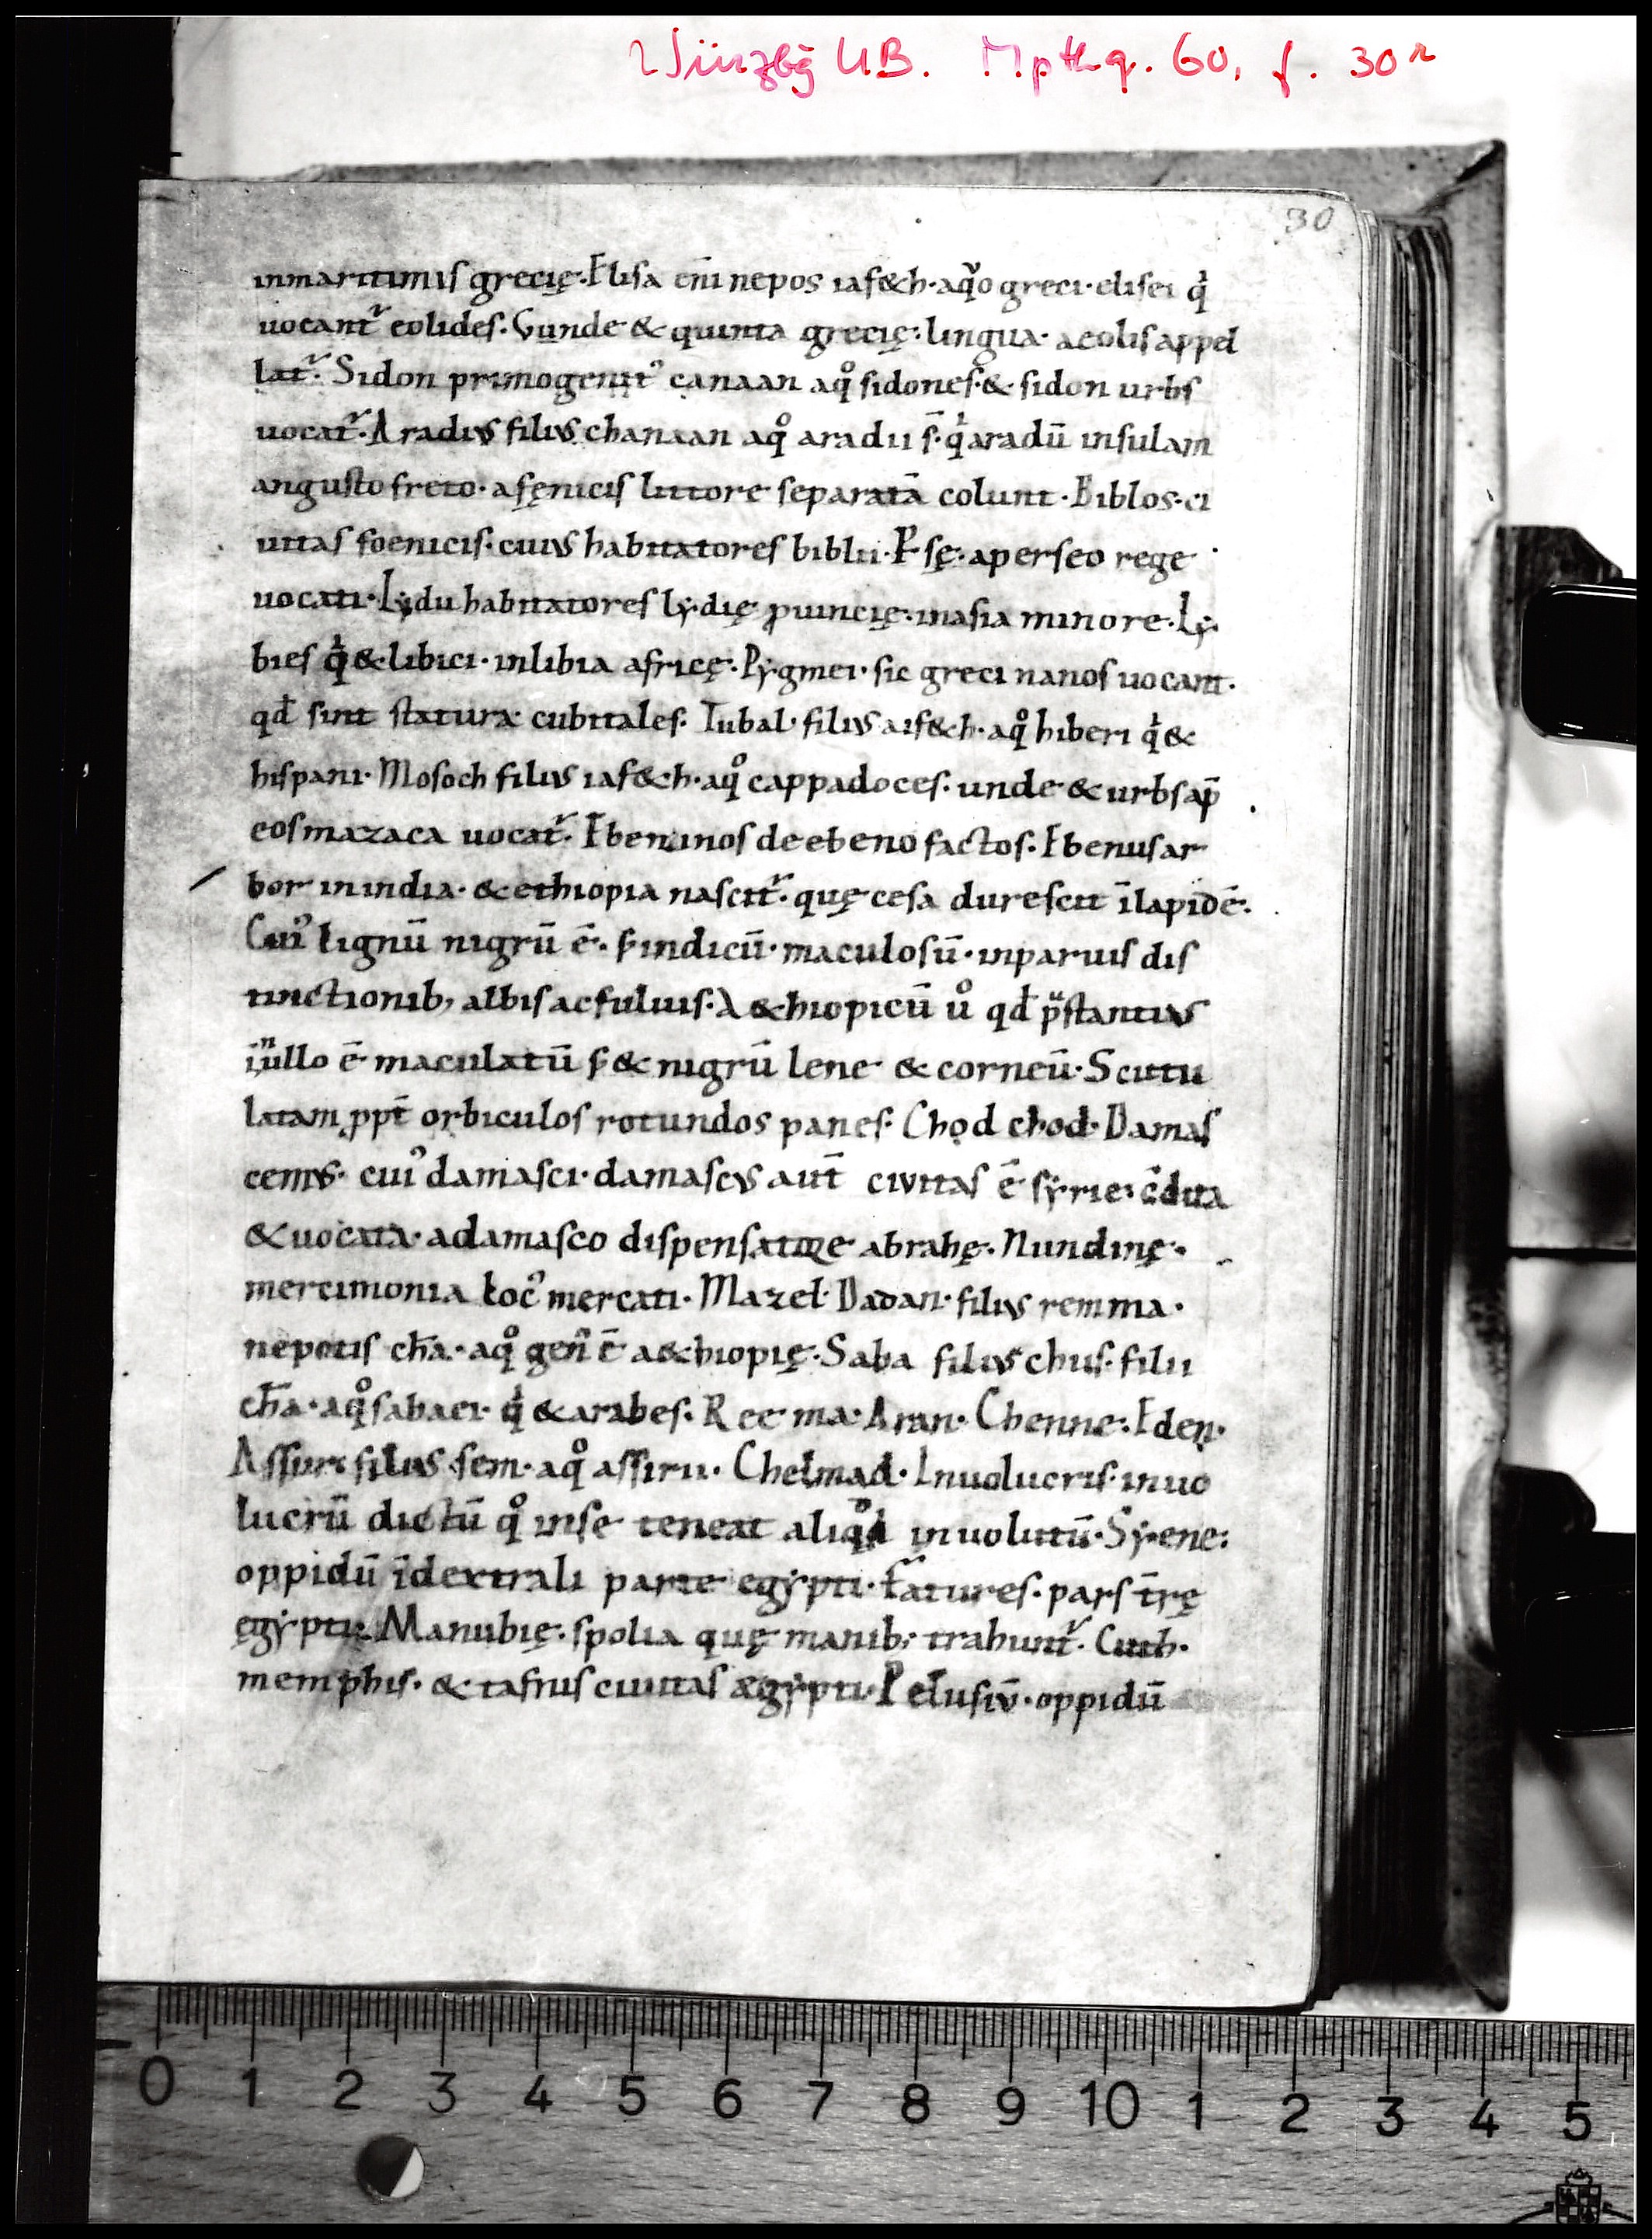 Würzbg UB. Mpthq. 60, f. 30r
30
inmaritimis grecię· Elisa eni̅ nepos iaf&h· aq̊o greci· elisei q̇
uocant᷑ eolides· Vnde & quinta grecię· lingua· aeolis appel
lat᷑· Sidon primogenit᾿ canaan aq̊ sidones· & sidon urbs
uocat᷑· Aradius filius chanaan aq̊ aradii s̅· q̇ aradū insulam
angusto freto· afęnicis littore separatā colunt· Biblos· ci
uitas foenicis· cuius habitatores biblii· P̲sę· aperseo rege
uocati· Lẏdii habitatores lẏdię ꝓuincię· inasia minore· Lẏ
bies q̇ & libici· inlibia africę· Pẏgmei· sic greci nanos uocant·
qđ sint statura cubitales· Tubal· filius aif&h· aq̊ hiberi q̇ &
hispani· Mosoch filius iaf&h· aq̊ cappadoces· unde & urbs ap̅
eos mazaca uocat᷑· Ebeninos de ebeno factos· Ebenus ar
bor inindia· & ethiopia nascit᷑· quę cesa durescit īlapidē·
Cui᾿ lignū nigrū ē· ꞩ indicū· maculosū· inparuis dis
tinctionib; albis ac fuluis· A&hiopicū ů qđ p̈stantius
īnullo ē maculatū ꞩ & nigrū lene & corneū· Scutu
latam ꝓpt̅ orbiculos rotundos panes· Chod chod· Damas
cenus· cui᾿ damasci· damascus aut̅ civitas ē sẏrie· c̅dita
& uocata· adamasco dispensatore abrahę· Nundinę·
mercimonia loc᾿ mercati· Mazel· Dadan· filius remma·
nepotis ch̅a· aq̊ gen᾿ ē a&hiopię· Saba filius chus· filii
ch̅a· aq̊ sabaei· q̇ & arabes· Reema· Aran· Chenne· Eden·
Assur filius sem· aq̊ assirii· Chelmad· Inuolucris· inuo
lucrū dictū q̊ inse teneat aliq̊d inuolutū· Sẏene·
oppidū īdextrali parte egẏpti· fatures· pars t̅rę
ęgẏpti· Manubię· spolia quę manib; trahunt᷑· Cuth·
memphis· & tafnis ciuitas ægẏpti· Pelusiū· oppidū
0 1 2 3 4 5 6 7 8 9 10 1 2 3 4 5